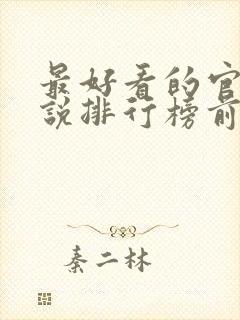 最好看的官
說排行榜前
秦二林